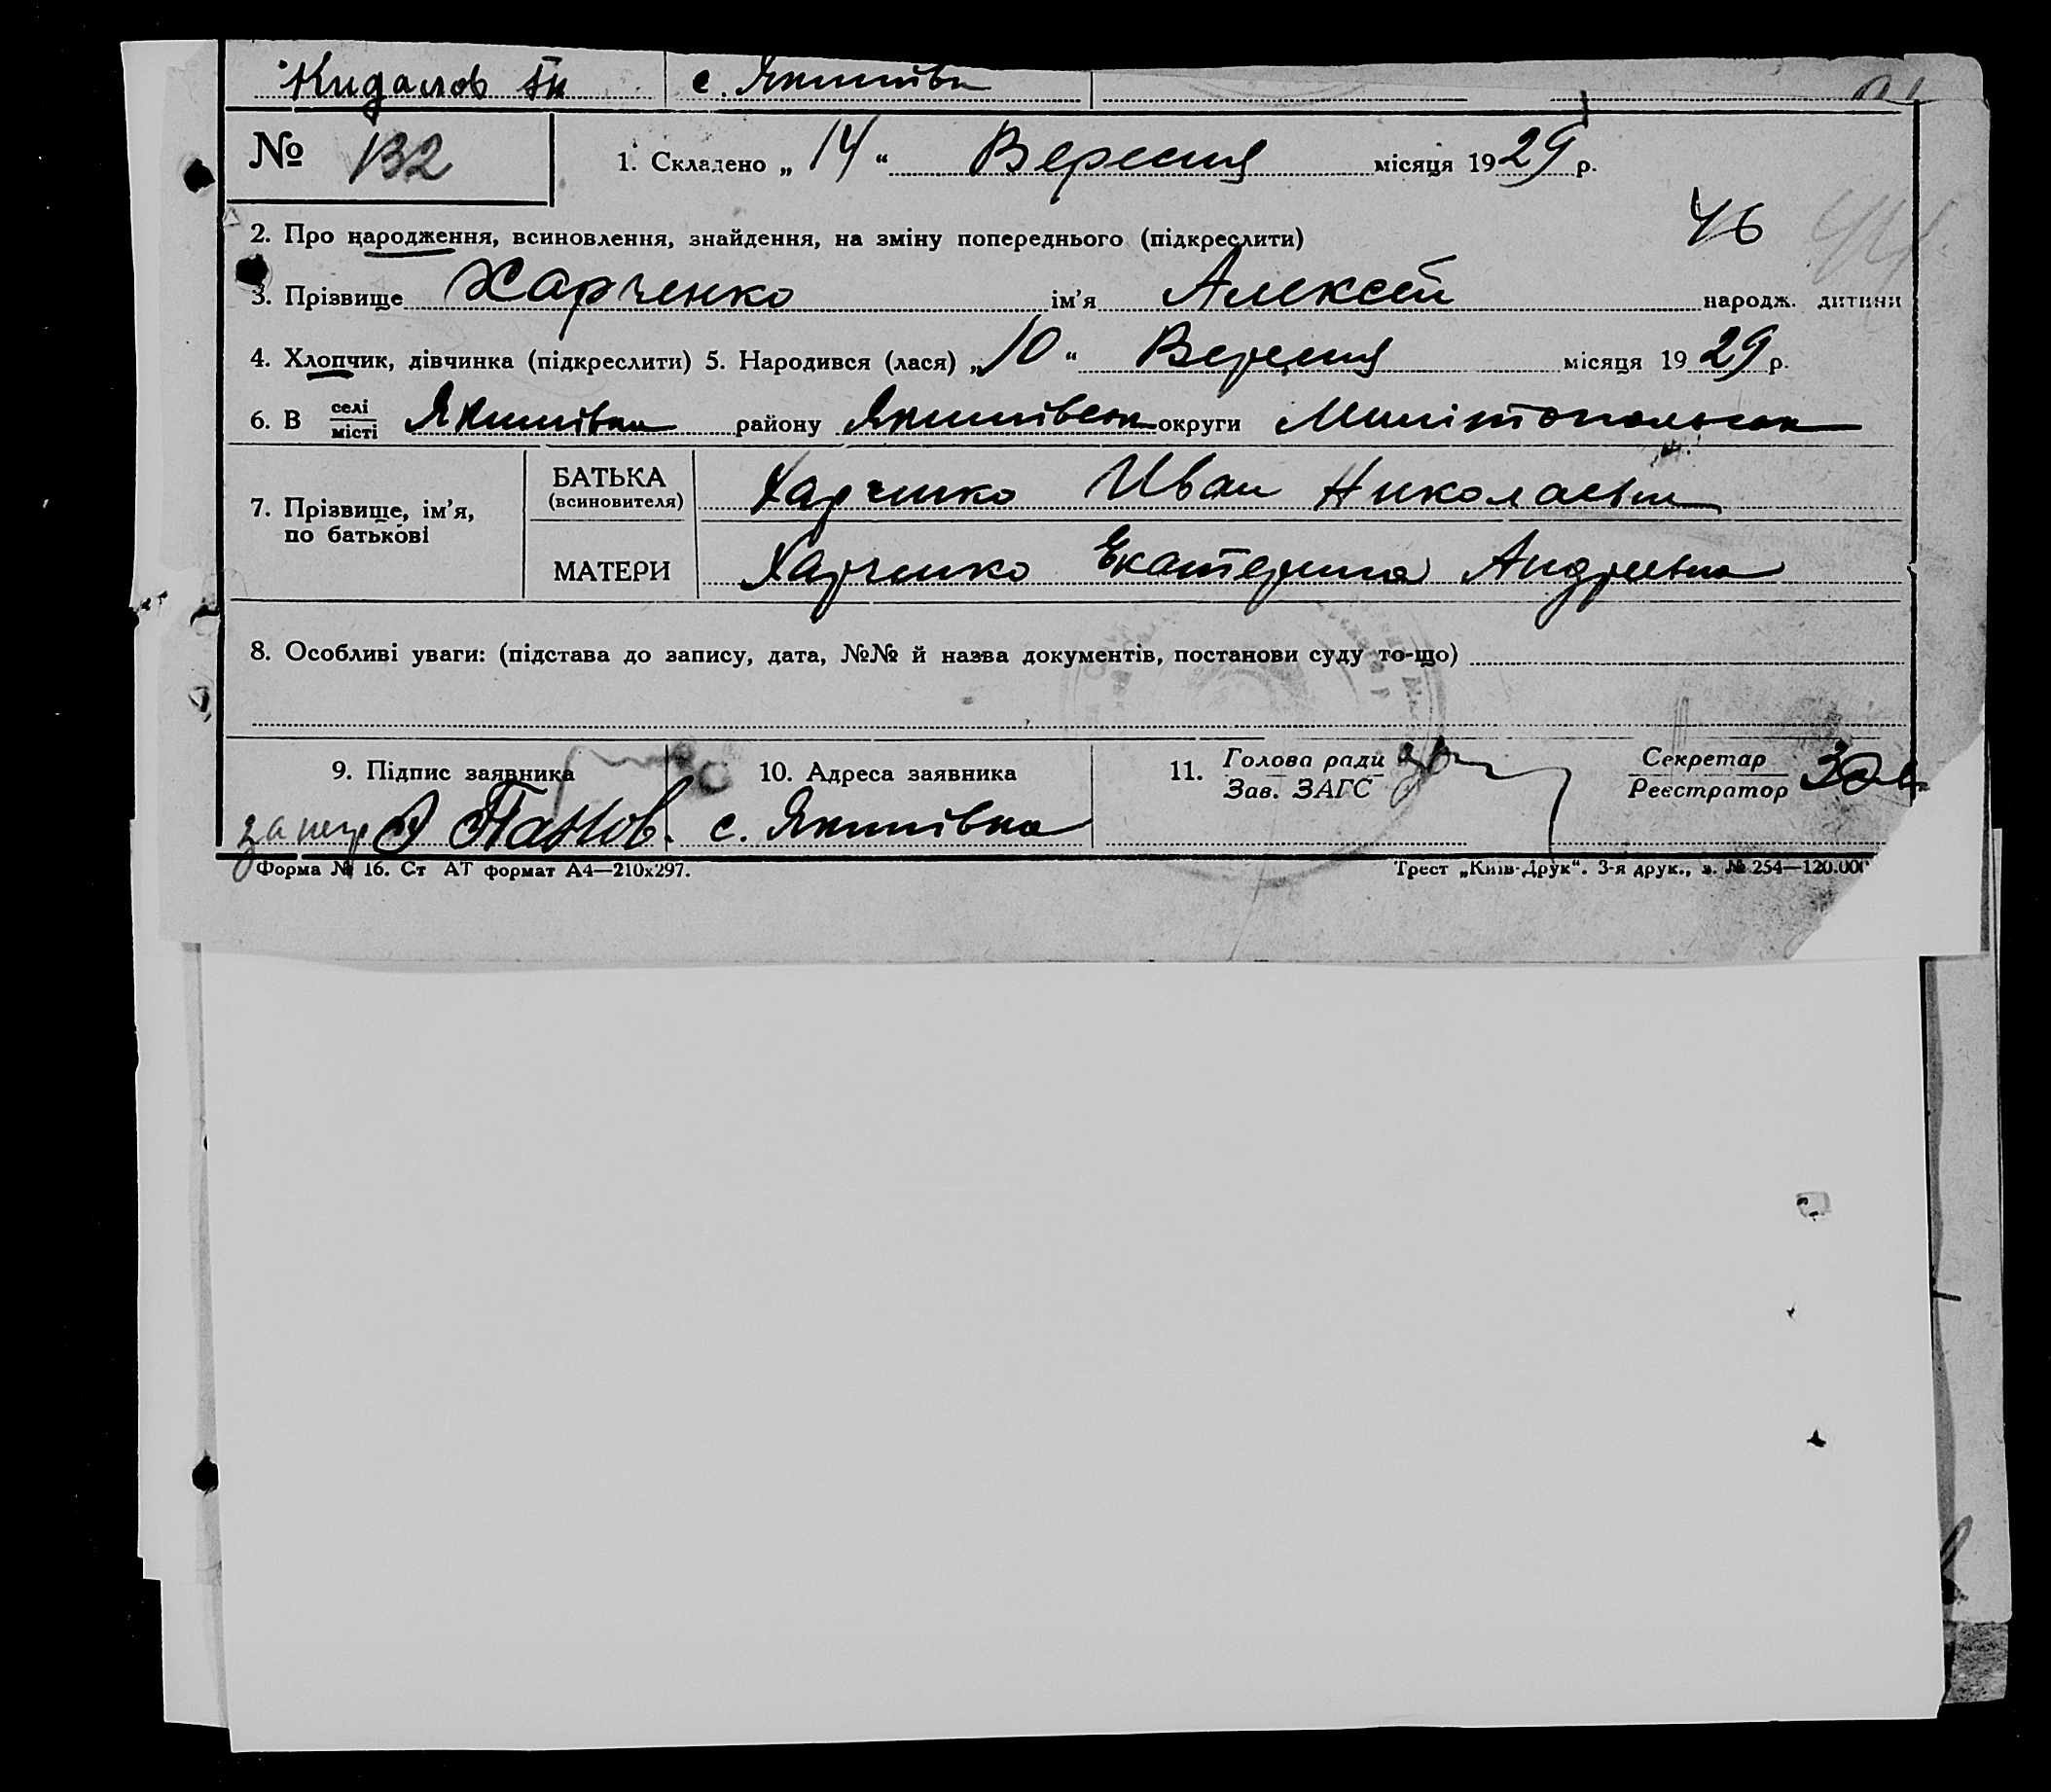 Кидалов Ак с. Якимівка
№ 132 1. Складено „ 14 “ Вересня місяця 1929 р.
2. Про народження, всиновлення, знайдення, на зміну попереднього (підкреслити) 46
3. Прізвище Харченко ім’я Алексей народж. дитини
4. Хлопчик, дівчинка (підкреслити) 5. Народився (лася) „ 10 “ Вересня місяця 1929 р.
6. В селі місті Якимівка району Якимівськ округи Мелітопольськ
7. Прізвище, ім’я, по батькові
БАТЬКА (всиновителя) Харченко Иван Николаевич
МАТЕРИ Харченко Екатерина Андреевна
8. Особливі уваги: (підстава до запису, дата, №№ й назва документів, постанови суду то-що)
9. Підпис заявника 10. Адреса заявника 11. Голова ради Зав. ЗАГС Секретар Реєстратор
за нег. Панов. с. Якимівка
Форма № 16. Ст АТ формат А4—210х297. Трест „Київ-Друк“. 3-я друк., з. № 254—120.000